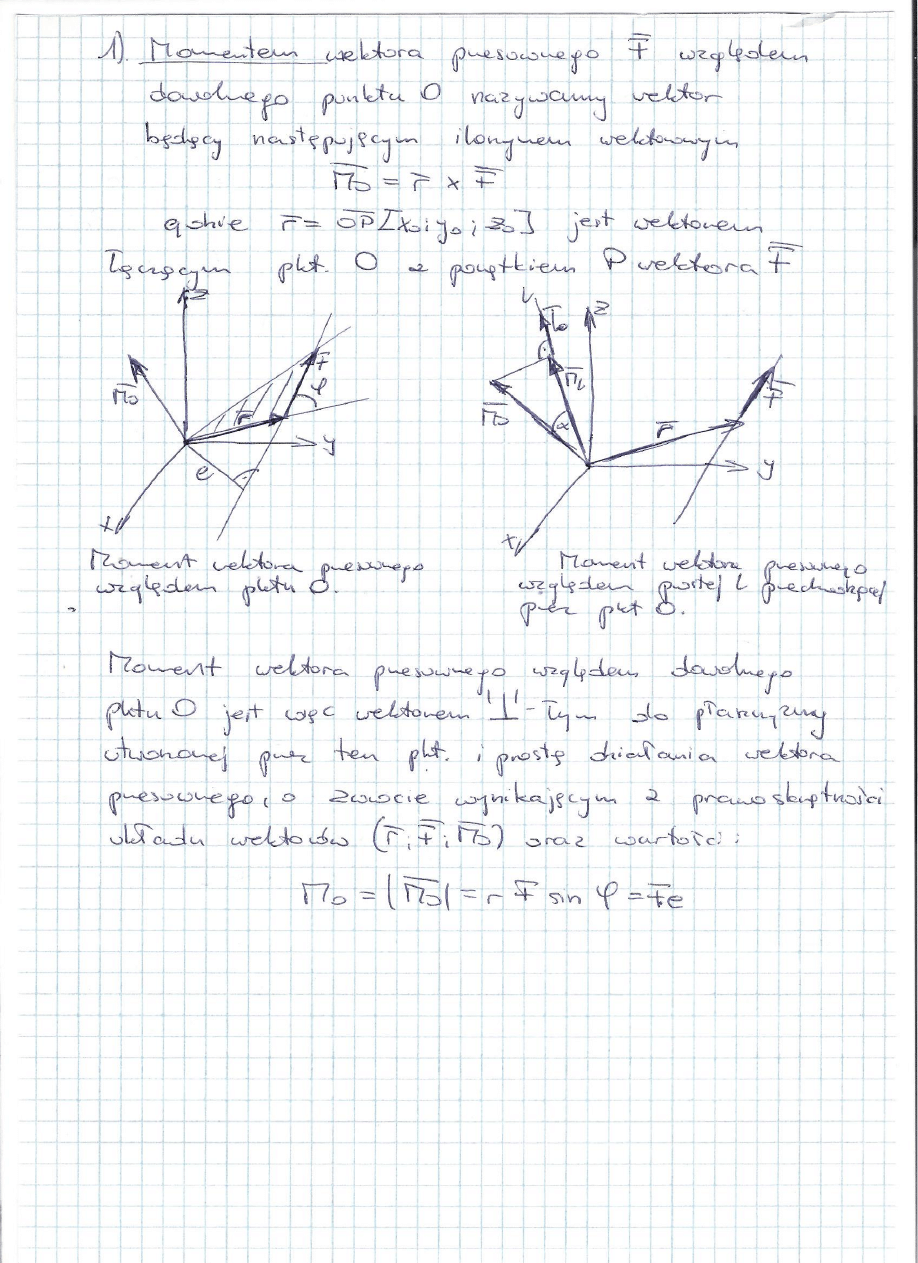 1). Momentem wektora przesuwnego F̄ względem
dowolnego punktu O nazywamy wektor
będący następującym iloczynem wektorowym
M̄o = r̄ × F̄
gdzie r̄ = O̅P̅ [x₀; y₀; z₀] jest wektorem
łączącym pkt. O z początkiem P wektora F̄
z
M̄o
r̄
F̄
φ
y
e
x
l
L̄o
z
M̄l
M̄o
α
r̄
F̄
y
x
Moment wektora przesuwnego
względem pktu O.
Moment wektora przesuwnego
względem prostej l przechodzącej
przez pkt O.
Moment wektora przesuwnego względem dowolnego
pktu O jest więc wektorem "⊥"-łym do płaszczyzny
utworzonej przez ten pkt. i prostą działania wektora
przesuwnego, o zwrocie wynikającym z prawoskrętności
układu wektorów (r̄; F̄; M̄o) oraz wartości:
Mo = |M̄o| = r F sin φ = Fe